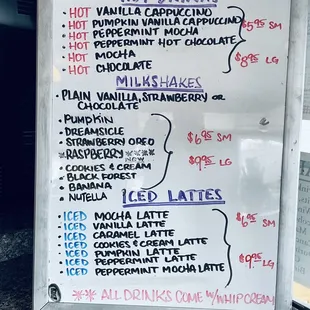 HOT VANILLA CAPPUCCINO
HOT PUMPKIN VANILLA CAPPUCCINO
HOT PEPPERMINT MOCHA
HOT PEPPERMINT HOT CHOCOLATE
HOT MOCHA
HOT CHOCOLATE
$5.95 SM
$8.95 LG
MILKSHAKES
PLAIN VANILLA, STRAWBERRY OR
CHOCOLATE
PUMPKIN
DREAMSICLE
STRAWBERRY OREO
RASPBERRY
NEW
COOKIES & CREAM
BLACK FOREST
BANANA
NUTELLA
$6.95 SM
$9.95 LG
ICED LATTES
ICED MOCHA LATTE
ICED VANILLA LATTE
ICED CARAMEL LATTE
ICED COOKIES & CREAM LATTE
ICED PUMPKIN LATTE
ICED PEPPERMINT LATTE
ICED PEPPERMINT MOCHA LATTE
$6.95 SM
$9.95 LG
** ALL DRINKS COME W/ WHIP CREAM